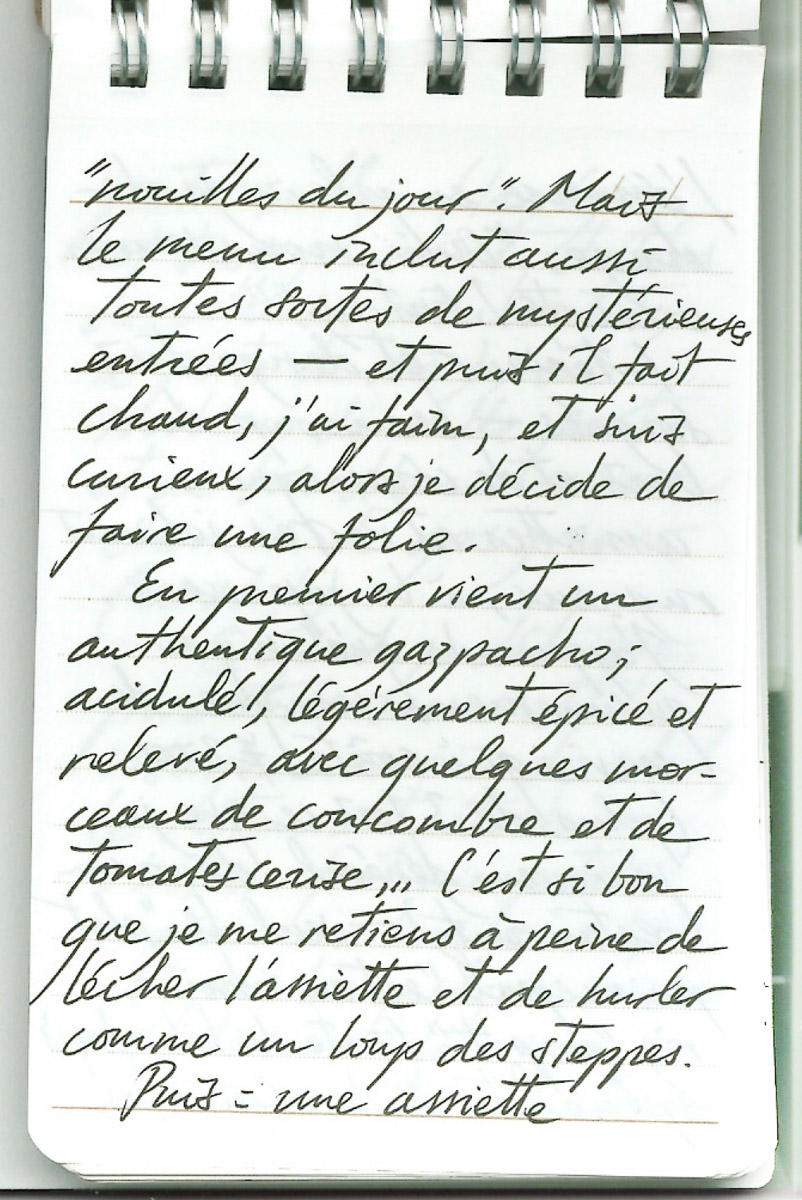 "nouilles du jour". Mais
le menu inclut aussi
toutes sortes de mystérieuses
entrées — et puis il fait
chaud, j'ai faim, et suis
curieux, alors je décide de
faire une folie.
En premier vient un
authentique gazpacho ;
acidulé, légèrement épicé et
relevé, avec quelques mor-
ceaux de concombre et de
tomates cerise... C'est si bon
que je me retiens à peine de
lécher l'assiette et de hurler
comme un loup des steppes.
Puis : une assiette